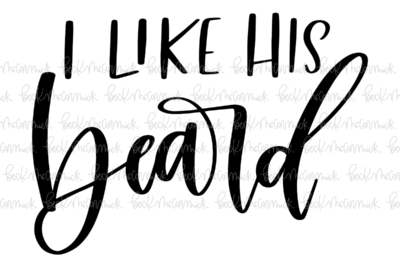 I LIKE HIS
beard